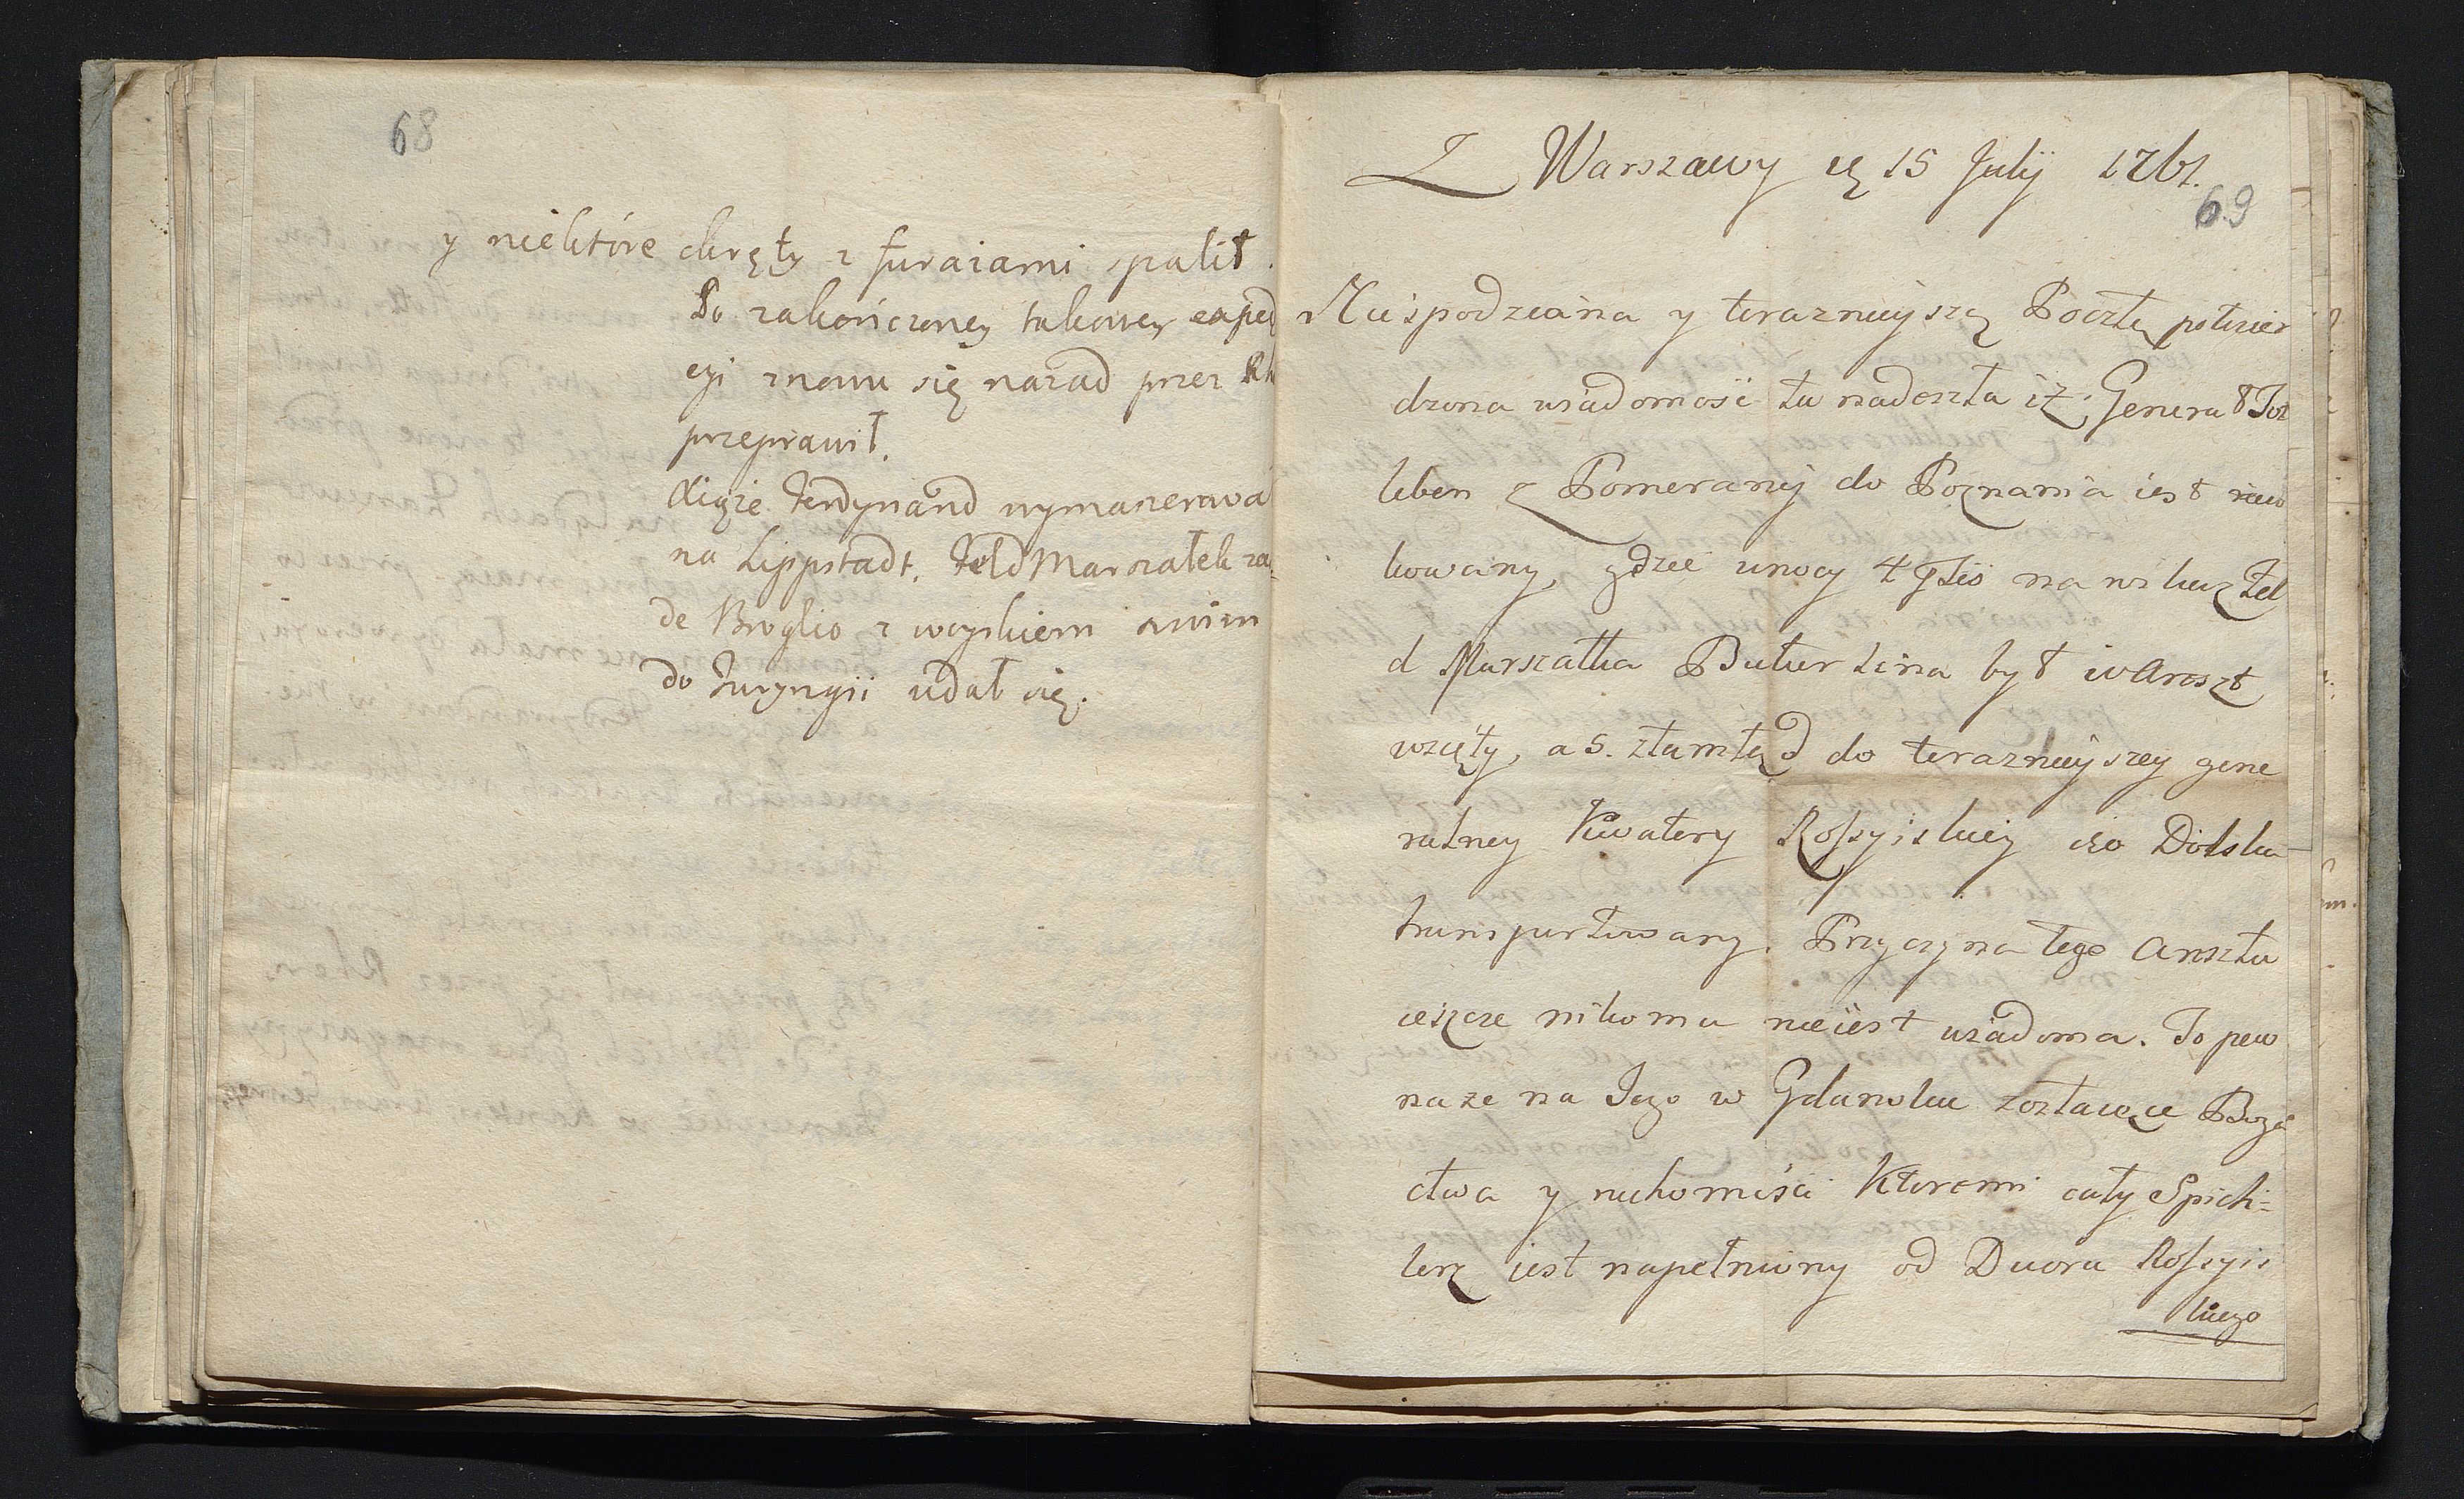 68
y niektóre okręty z furażami spalił.
Po zakończoney takowey exped
cyi znowu się nazad przez Rh
przeprawił.
Xiąże Ferdynand wymaszerowa
na Lippstadt, Feld Marszałek za=
de Broglio z woyskiem swim
do Turyngii udał się.
Z Warszawy d 15 Julij 1761.
69
Niespodziana y teraznieyszą Pocztą potwier
dzona wiadomość tu nadeszła iż Generał Tot
leben z Pomeranij do Poznania iest rewo
kowany, gdzie w nocy 4 na rozkaz Fel
d Marszałka Buturlina był w Areszt
wzięty, a 5. ztamtąd do terazniejszey gene
ralney Kwatery Rossyiskiey do Dolska
transportowany. Przyczyna tego Aresztu
ieszcze nikomu nie iest wiadoma. To pew
na że na Jego w Gdansku zostaiące Boga
ctwa y ruchomości Ktoremi cały Spich=
lerz iest napełniony od Dworu Rossyis
kiego